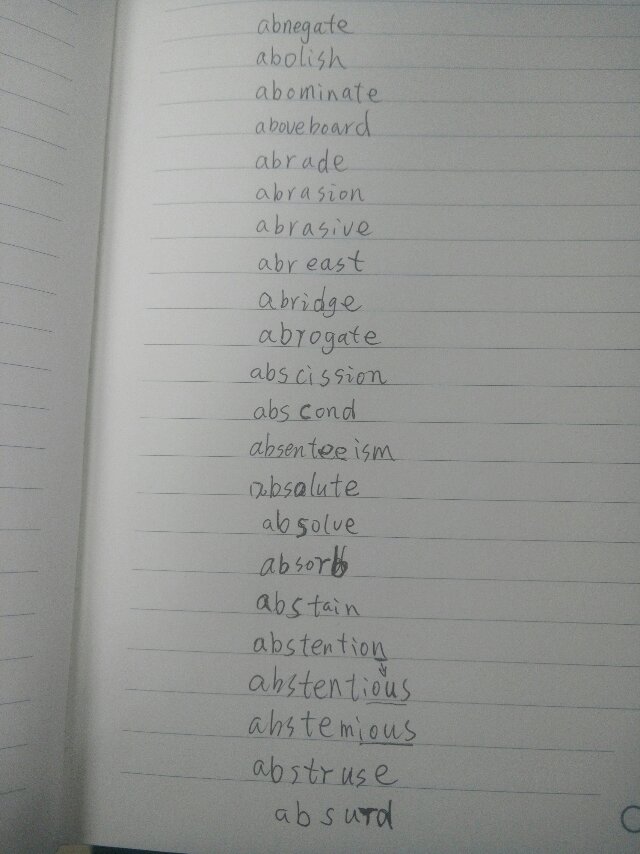 abnegate
abolish
abominate
aboveboard
abrade
abrasion
abrasive
abreast
abridge
abrogate
abscission
abscond
absenteeism
absolute
absolve
absorb
abstain
abstention
abstentious
abstemious
abstruse
absurd